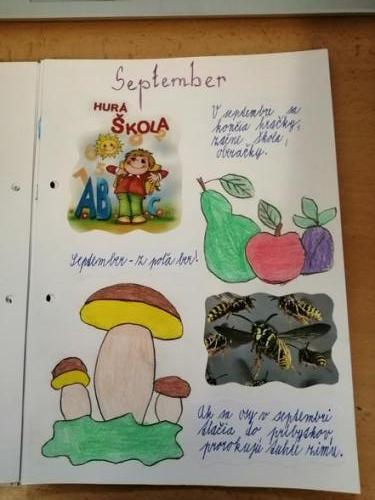 September
HURÁ
ŠKOLA
AB
C
V septembri sa
končia hračky,
začne škola,
obrázky.
September - z poľa ber!
Ak sa osy v septembri
tlačia do príbytkov
prorokujú tuhú zimu.